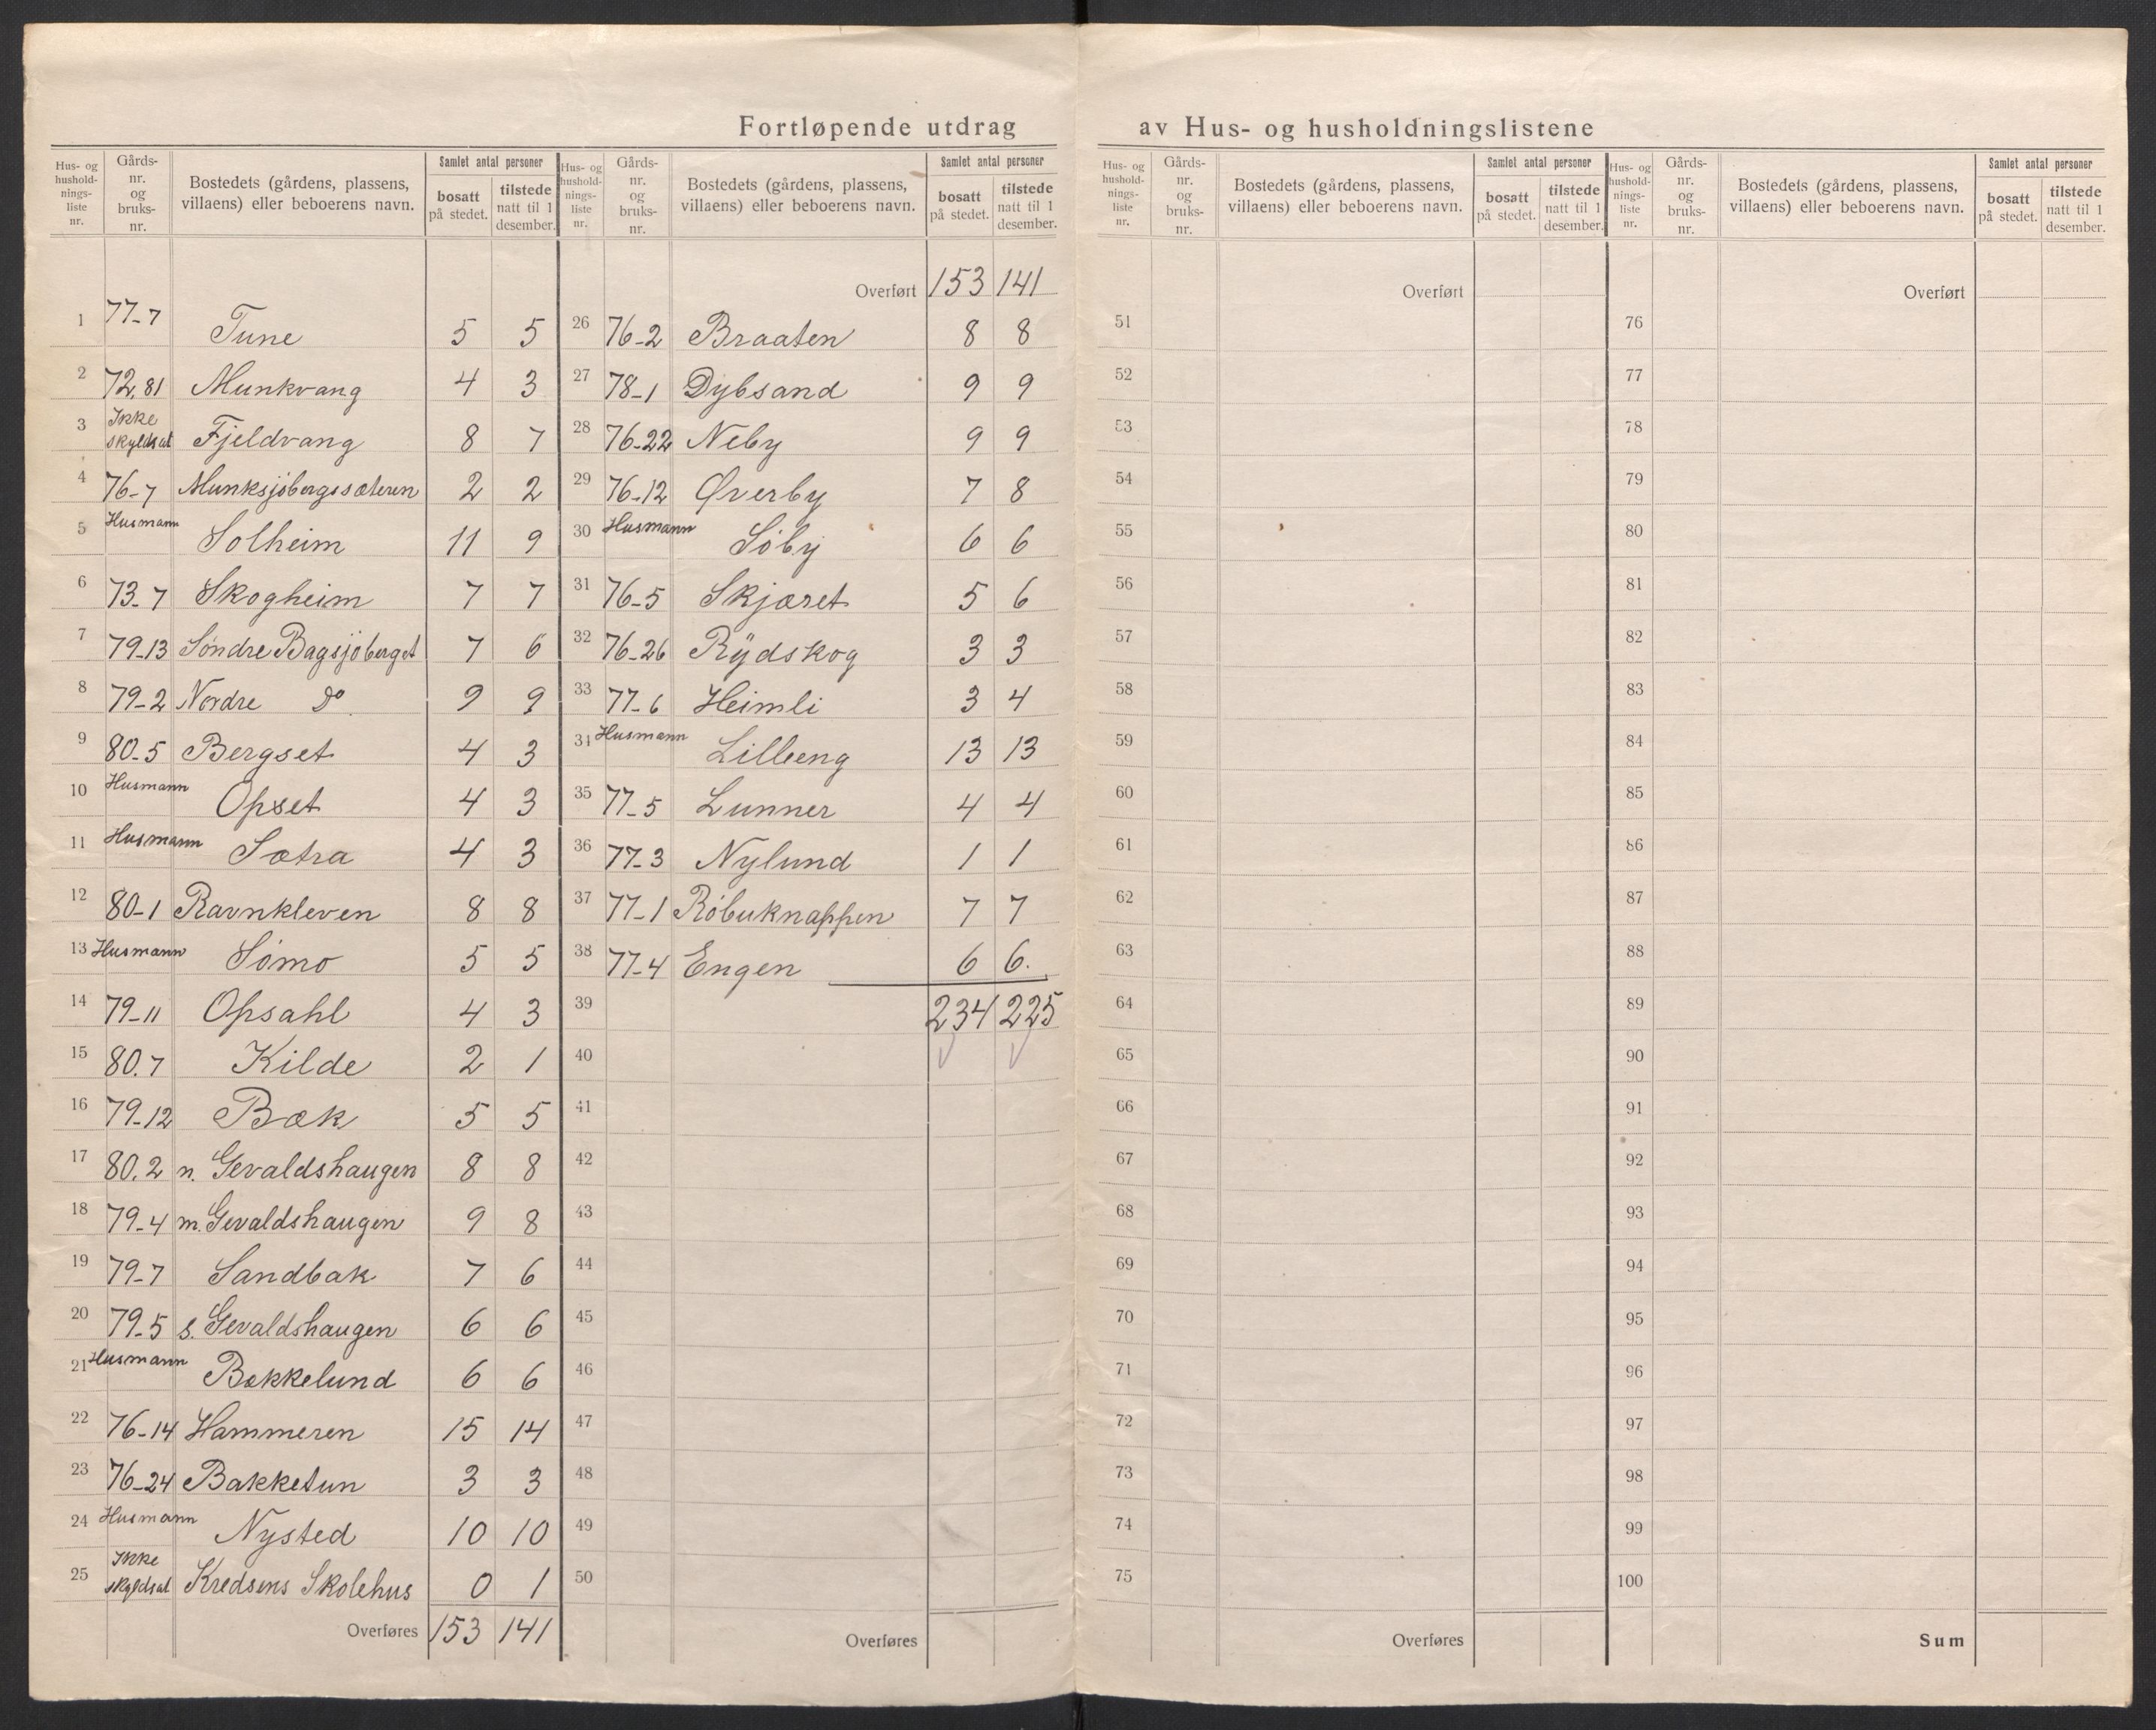 Fortløpende utdrag av Hus- og husholdningslistene
Hus- og husholdnings-liste nr. | Gårds-nr. og bruks-nr. | Bostedets (gårdens, plassens, villaens) eller beboerens navn. | Samlet antal personer | bosatt på stedet. | tilstede natt til 1 desember.
1 77-7 Tune 5 5
2 72,81 Munkvang 4 3
3 Ikke skyldsat Fjeldvang 8 7
4 76-7 Munksjöbergssæteren 2 2
5 Husmann Solheim 11 9
6 73-7 Skogheim 7 7
7 79-13 Söndre Bagsjöberget 7 6
8 79-2 Nordre do 9 9
9 80-5 Bergset 4 3
10 Husmann Opset 4 3
11 Husmann Sætra 4 3
12 80-1 Ravnkleven 8 8
13 Husmann Sömo 5 5
14 79-11 Opsahl 4 3
15 80.7 Kilde 2 1
16 79-12 Bæk 5 5
17 80.2 n. Gevaldshaugen 8 8
18 79-4 m. Gevaldshaugen 9 8
19 79-7 Sandbak 7 6
20 79-5 s. Gevaldshaugen 6 6
21 Husmann Bækkelund 6 6
22 76-14 Hammeren 15 14
23 76-24 Bakketun 3 3
24 Husmann Nysted 10 10
25 Ikke skyldsat Kredsens Skolehus 0 1
Overføres 153 141
Hus- og husholdnings-liste nr. | Gårds-nr. og bruks-nr. | Bostedets (gårdens, plassens, villaens) eller beboerens navn. | Samlet antal personer | bosatt på stedet. | tilstede natt til 1 desember.
Overført 153 141
26 76-2 Braaten 8 8
27 78-1 Dybsand 9 9
28 76-22 Neby 9 9
29 76-12 Øverby 7 8
30 Husmann Söby 6 6
31 76-5 Skjæret 5 6
32 76-26 Rÿdskog 3 3
33 77-6 Heimli 3 4
34 Husmann Lilleeng 13 13
35 77-5 Lunner 4 4
36 77-3 Nylund 1 1
37 77-1 Röbuknappen 7 7
38 77-4 Engen 6 6.
39 234 225
40
41
42
43
44
45
46
47
48
49
50
Overføres
Hus- og husholdnings-liste nr. | Gårds-nr. og bruks-nr. | Bostedets (gårdens, plassens, villaens) eller beboerens navn. | Samlet antal personer | bosatt på stedet. | tilstede natt til 1 desember.
Overført
51
52
53
54
55
56
57
58
59
60
61
62
63
64
65
66
67
68
69
70
71
72
73
74
75
Overføres
Hus- og husholdnings-liste nr. | Gårds-nr. og bruks-nr. | Bostedets (gårdens, plassens, villaens) eller beboerens navn. | Samlet antal personer | bosatt på stedet. | tilstede natt til 1 desember.
Overført
76
77
78
79
80
81
82
83
84
85
86
87
88
89
90
91
92
93
94
95
96
97
98
99
100
Sum